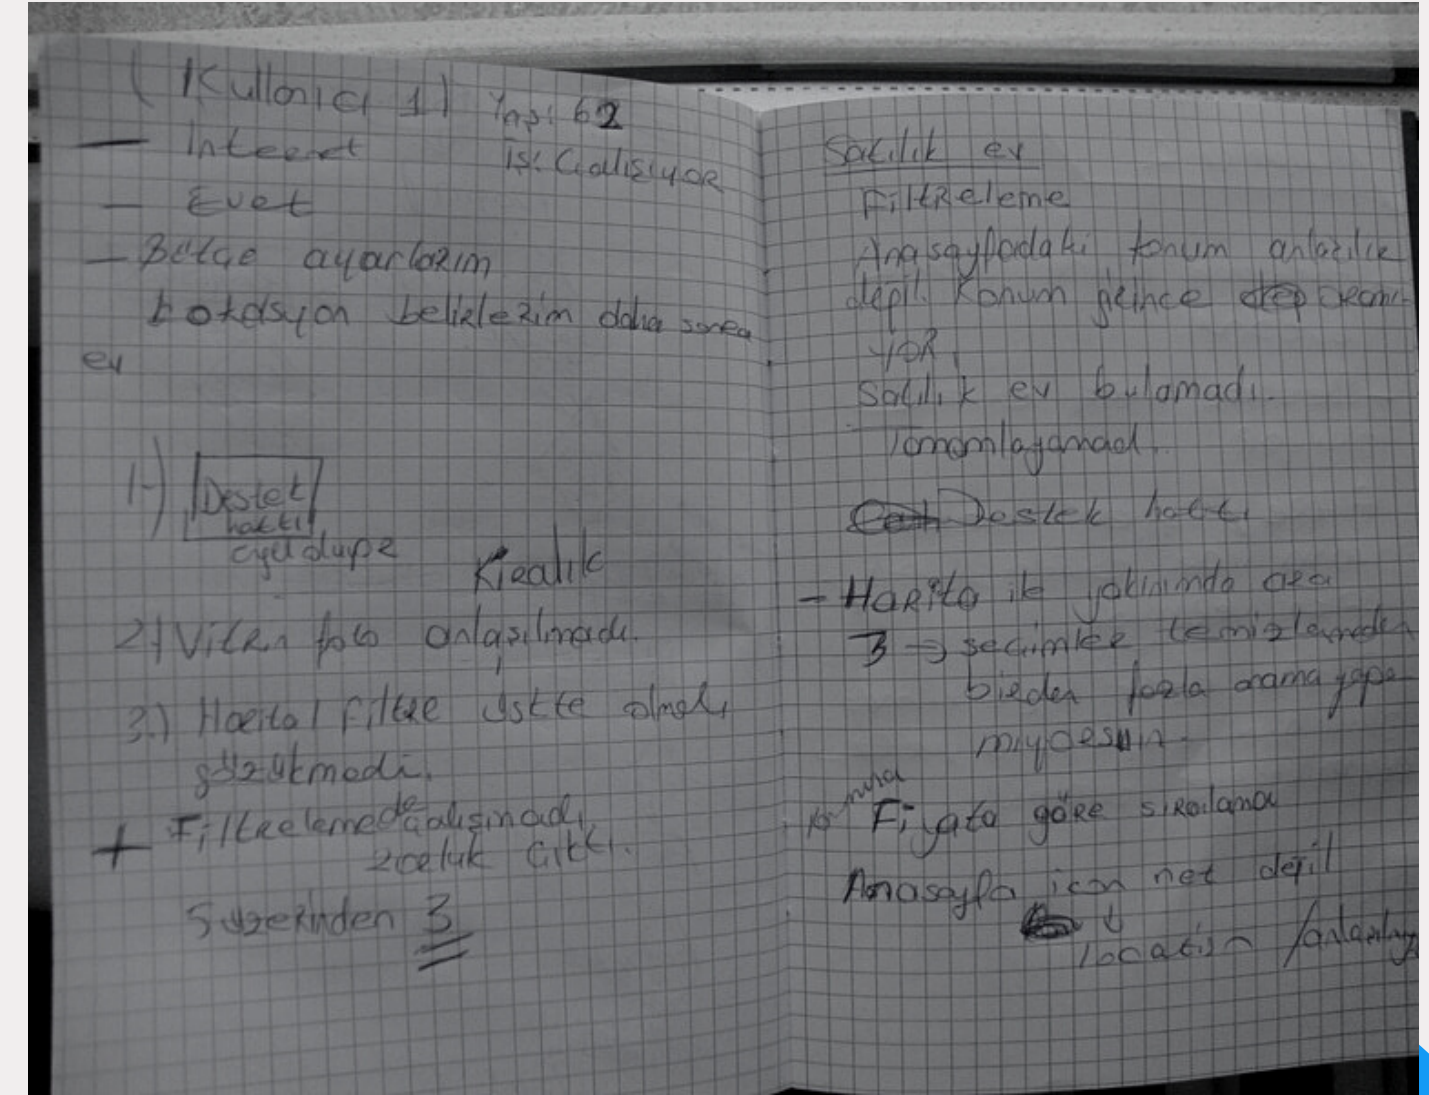 (Kullanıcı 1) Yaş: 62
— İnternet İş: Çalışıyor
— Evet
— Bütçe ayarlarım
Lokasyon belirlerim daha sonra
ev
1-) Destek
hattı
Kiralık
2) Vitrin foto anlaşılmadı.
3.) Harita / Filtre üstte olmalı,
gözükmedi.
+ Filtrelemede
çıktı.
5 üzerinden 3
Satılık ev
Filtreleme
Anasayfadaki konum anlaşılır
değil. Konum girince
YOR.
Satılık ev bulamadı.
Tamamlayamadı.
Destek hattı
— Harita ile yakınımda ara
3 → seçimler temizlemeden
birden fazla arama yapa
mıydesin
Fiyata göre sıralama
Anasayfa icon net değil
↓
location